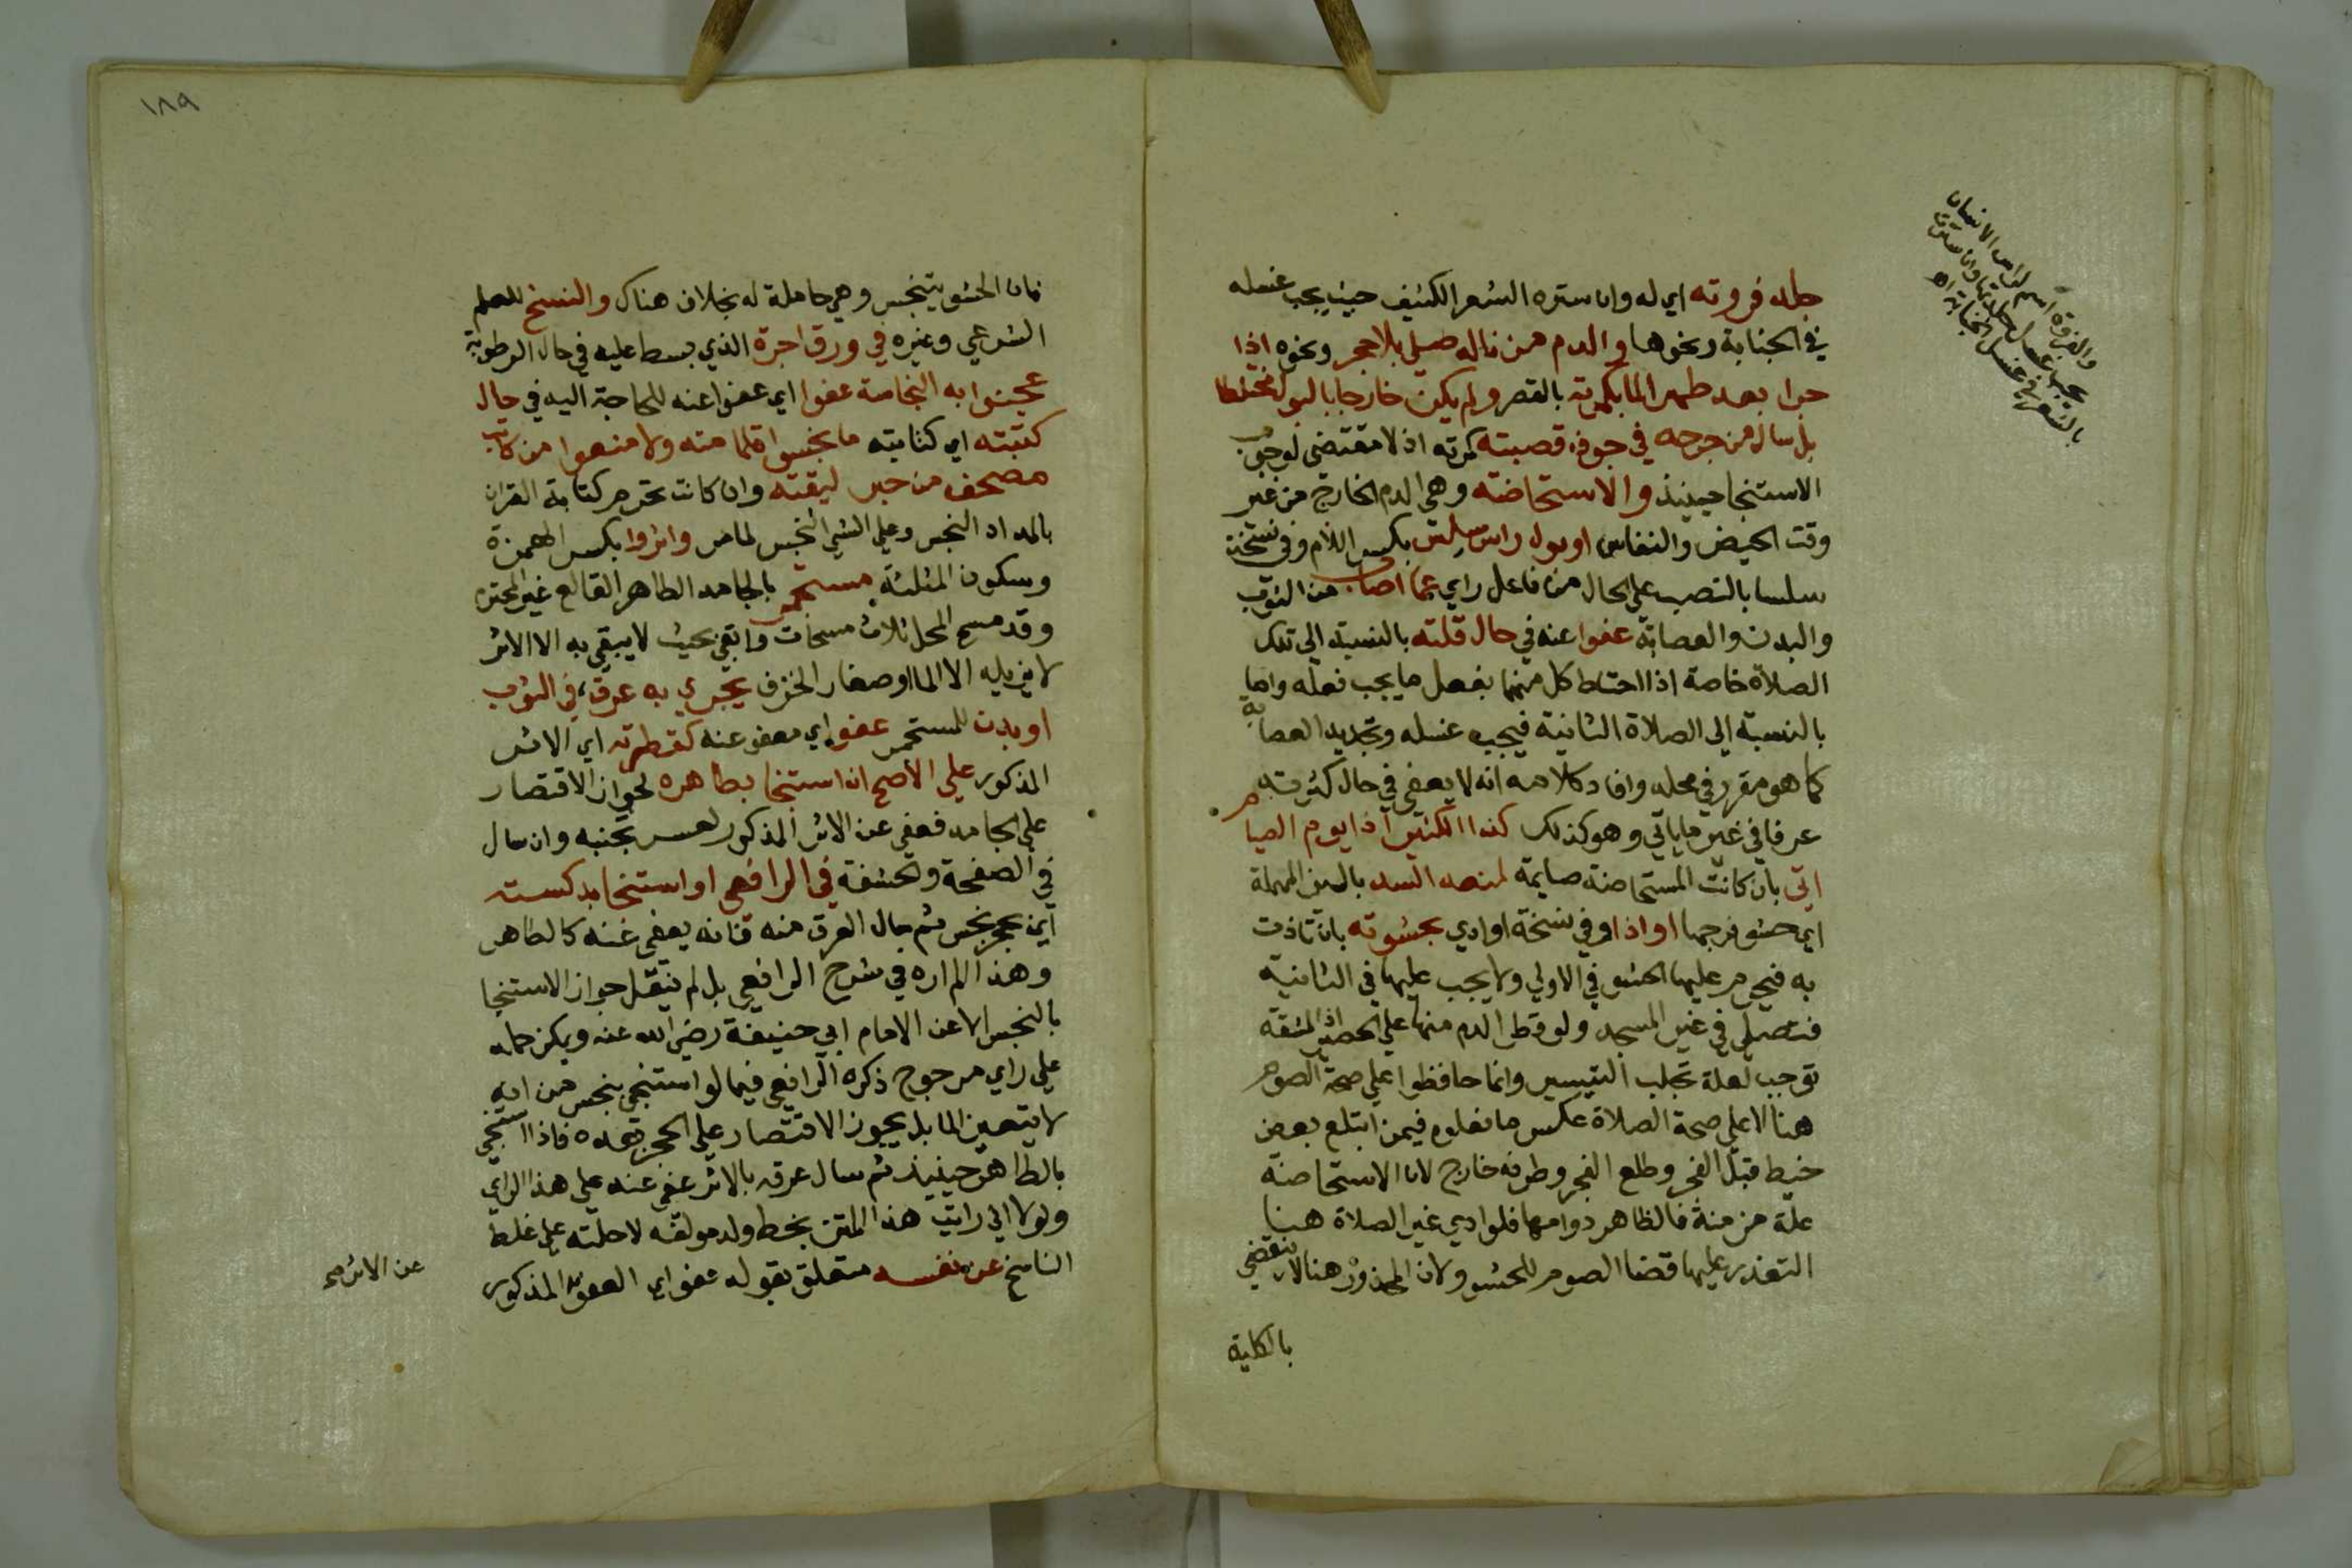 جلد فروته اي له وان ستره الشعر الكثيف حيث يجب غسله
في الجنابة ونحوها والدم ممن ناله صلي بلا حجر ونحوه اذا
جرا بعد طهر الما بكمرته بالقصر ولم يكن خارجا بالبول مختلطا
بل سال من جرحه في جوف قصبته كمرته اذ لا مقتضي لوجوب
الاستنجا حينيذ والاستحاضة وهي الدم الخارج من غير
وقت الحيض والنفاس او بول راس سلس بكسر اللام وفي نسخة
سلسا بالنصب علي الحال من فاعل راي عما اصاب من الثوب
والبدن والعصابة عفوا عنه في حال قلته بالنسبة الي تلك
الصلاة خاصة اذا احتاط كل منهما بفعل ما يجب فعله واما
بالنسبة الي الصلاة الثانية فيجب غسله وتجديد العصابة
كما هو مقرر في محله وافاد كلامه انه لا يعفي في حال كثرته
عرفا في غير ما ياتي وهو كذلك كذا الكثير اذا يوم الصيام
اتي بان كانت المستحاضة صايمة لمنعه السد بالسين المهملة
اي حشو فرجها او اذا او في نسخة او اوذي بحشوته بان تاذت
به فيحرم عليها الحشو في الاولي ولا يجب عليها في الثانية
فتصلي في غير المسجد ولو قطر الدم منها علي الحصير اذ المشقة
توجب لعلة تجلب التيسير وانما حافظوا علي صحة الصوم
هنا لا علي صحة الصلاة عكس ما فعلوه فيمن ابتلع بعض
خيط قبل الفجر وطلع الفجر وطرفه خارج لان الاستحاضة
علة مزمنة فالظاهر دوامها فلو ادي غير الصلاة هنا
التعذر عليها قضا الصوم للحشو ولان المحذور هنا لا ينتفي
بالكلية
والفروة اسم لراس الانسان
يجب غسل جلدتها وان سترت
بالشعر في غسل الجنابة اه
١٨٩
فان الحشو يتنجس وهي حاملة له بخلاف هناك والنسخ للعلم
الشرعي وغيره في ورق اجرة الذي بسط عليه في حال الرطوبة
عجنوا به النجاسة عفوا اي عفوا عنه للحاجة اليه في حال
كتبته اي كتابته ما نجسوا قلما منه ولا منعوا من كاتب
مصحف من حبر ليقته وان كانت تحرم كتابة القران
بالمداد النجس وعلي الشي النجس لماض واثروا بكسر الهمزة
وسكون المثلثة مستجمر بالجامد الطاهر القالع غير المحترم
وقد مسح المحل ثلاث مسحات وابقي بحيث لا يبقي به الا الاثر
لا يزيله الا الما او صغار الخزف يجري به عرق في الثوب
او بدن للمستجمر عفو اي معفو عنه كقطرته اي الاثر
المذكور علي الاصح ان استنجا بطاهره لجواز الاقتصار
علي الجامد فعفي عن الاثر المذكور لعسر تجنبه وان سال
في الصفحة والحشفة في الرافعي او استنجا بدكسته
اين بحجر نجس ثم جال العرق منه فانه يعفي عنه كالطاهر
وهذا لم اره في شرح الرافعي بل لم ينقل جواز الاستنجا
بالنجس الا عن الامام ابي حنيفة رضي الله عنه ويمكن حمله
علي راي مرجوح ذكره الرافعي فيما لو استنجي بنجس من انه
لا يتعين الما بل يجوز الاقتصار علي الحجر بعده فاذا استنجي
بالطاهر حينيذ ثم سال عرقه بالاثر عفي عنه علي هذا الراي
ولولا اني رايت هذا المتن بخط ولد مولفه لاحلته علي غلط
الناسخ عن نفسه متعلق بقوله عفو اي العفو المذكور
عن الاثر صح